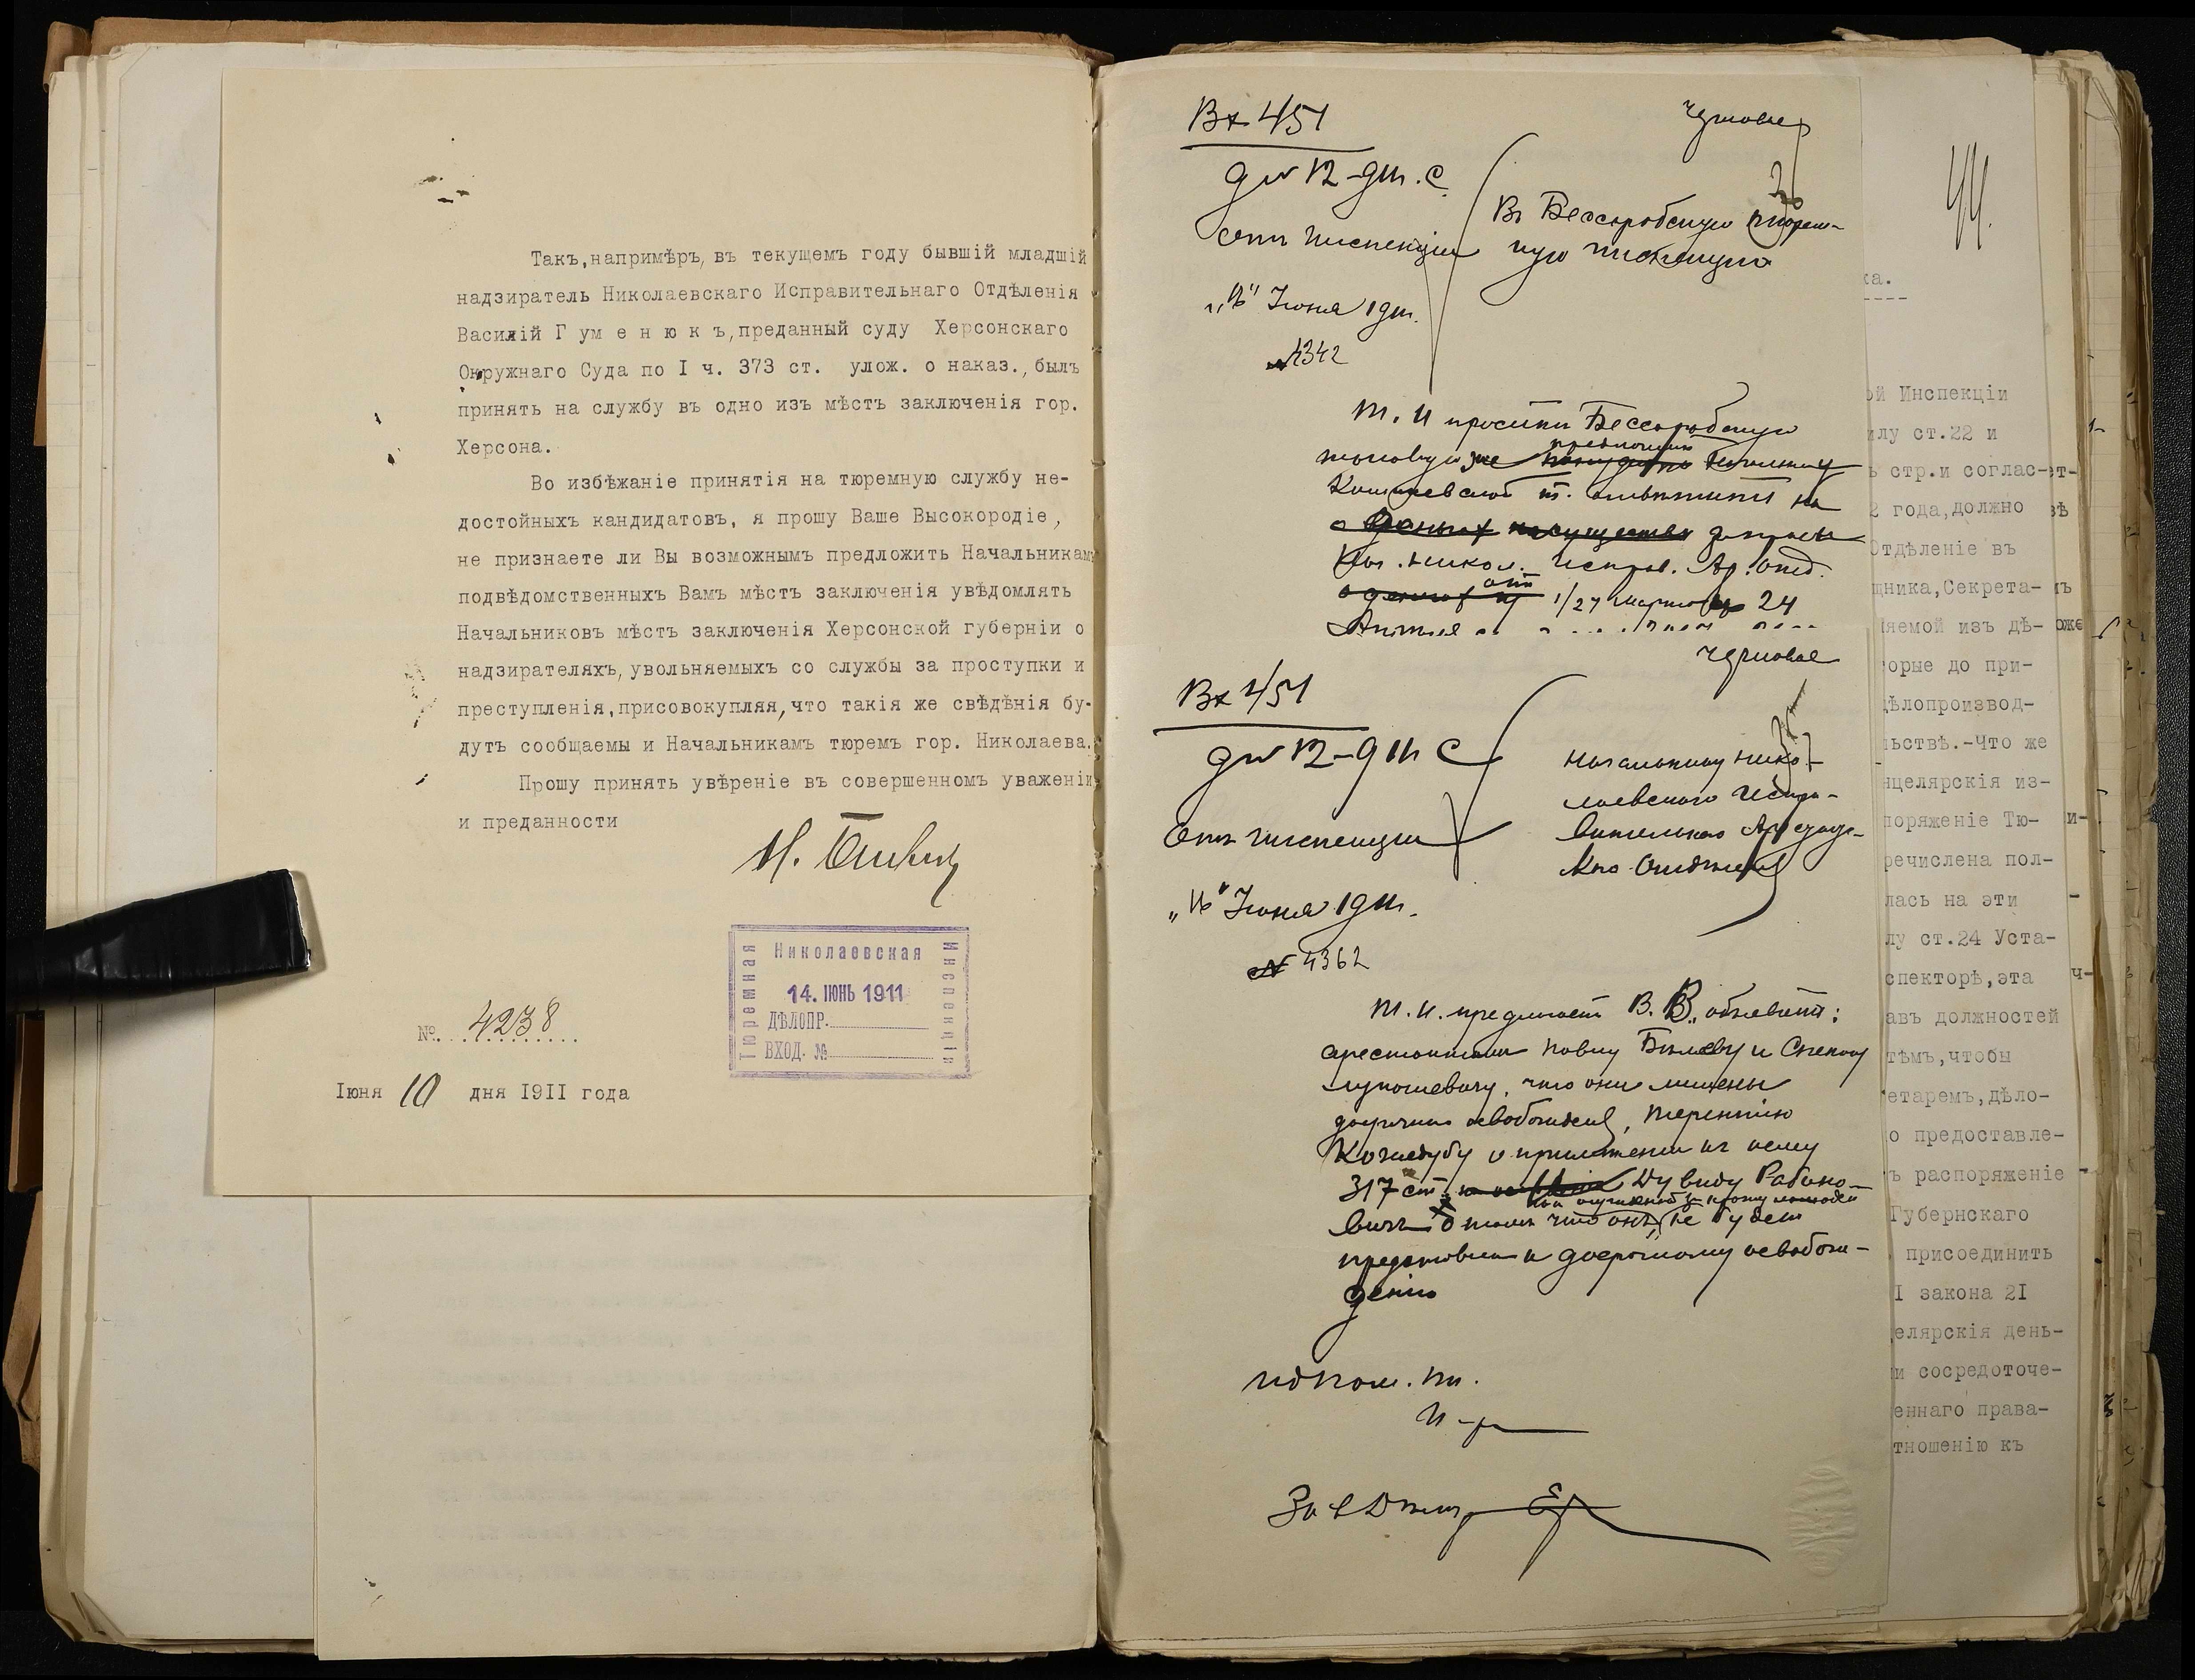 Такъ,напримѣръ, въ текущемъ году бывшій младшій
надзиратель Николаевскаго Исправительнаго Отдѣленія
Василій Г ум е н ю к ъ,преданный суду Херсонскаго
Окружнаго Суда по I ч. 373 ст. улож. о наказ., былъ
принять на службу въ одно изъ мѣстъ заключенія гор.
Херсона.
Во избѣжаніе принятія на тюремную службу не-
достойныхъ кандидатовъ, я прошу Ваше Высокородіе,
не признаете ли Вы возможнымъ предложить Начальникамъ
подвѣдомственныхъ Вамъ мѣстъ заключенія увѣдомлять
Начальниковъ мѣстъ заключенія Херсонской губерніи о
надзирателяхъ, увольняемыхъ со службы за проступки и
преступленія,присовокупляя,что такія же свѣдѣнія бу-
дутъ сообщаемы и Начальникамъ тюремъ гор. Николаева.
Прошу принять увѣреніе въ совершенномъ уваженіи
и преданности
Николаевская
Тюремная
Инспекція
14. ІЮНЬ 1911
ДѢЛОПР.
ВХОД. №
№ 4238
Іюня 10 дня I9II года
44.
Вх 451
Въ Бессарабскую тюрем-
ную инспекцію
отъ инспекціи
"16" Іюня 1911.
№ 4342
Т. И. просить Бессарабскую
таковую же предложить Начальнику
Кишиневской т. отвѣтить на
Нач. Никол. Исправ. Ар. Отд.
отъ 1/27 Марта 24
Апрѣля
Черновое
Вх 451
Начальнику Нико-
лаевскаго Испра-
вительнаго Арестант-
скаго Отдѣленія
Отъ инспекціи
"16" Іюня 1911.
№ 4362
Т. И. предлагаетъ В. В. объявить:
арестантамъ Павлу Бѣляеву и Степану
что они лишены
досрочнаго освобожденія, Терентію
Кочедубу о примѣненіи къ нему
317 ст. Давиду Рабино-
вичъ о томъ что онъ не будетъ
представленъ къ досрочному освобож-
денію
ка.
ой Инспекціи
илу ст.22 и
ъ стр.и соглас-
2 года,должно
Отдѣленіе въ
щника,Секрета-
няемой изъ дѣ-
орые до при-
дѣлопроизвод-
льствѣ.-Что же
нцелярскія из-
поряженіе Тю-
речислена пол-
лась на эти
лу ст.24 Уста-
спекторѣ,эта
авъ должностей
тѣмъ,чтобы
етаремъ,дѣло-
о предоставле-
ъ распоряженіе
Губернскаго
присоединить
I закона 2I
елярскія день-
и сосредоточе-
еннаго права-
тношенію къ